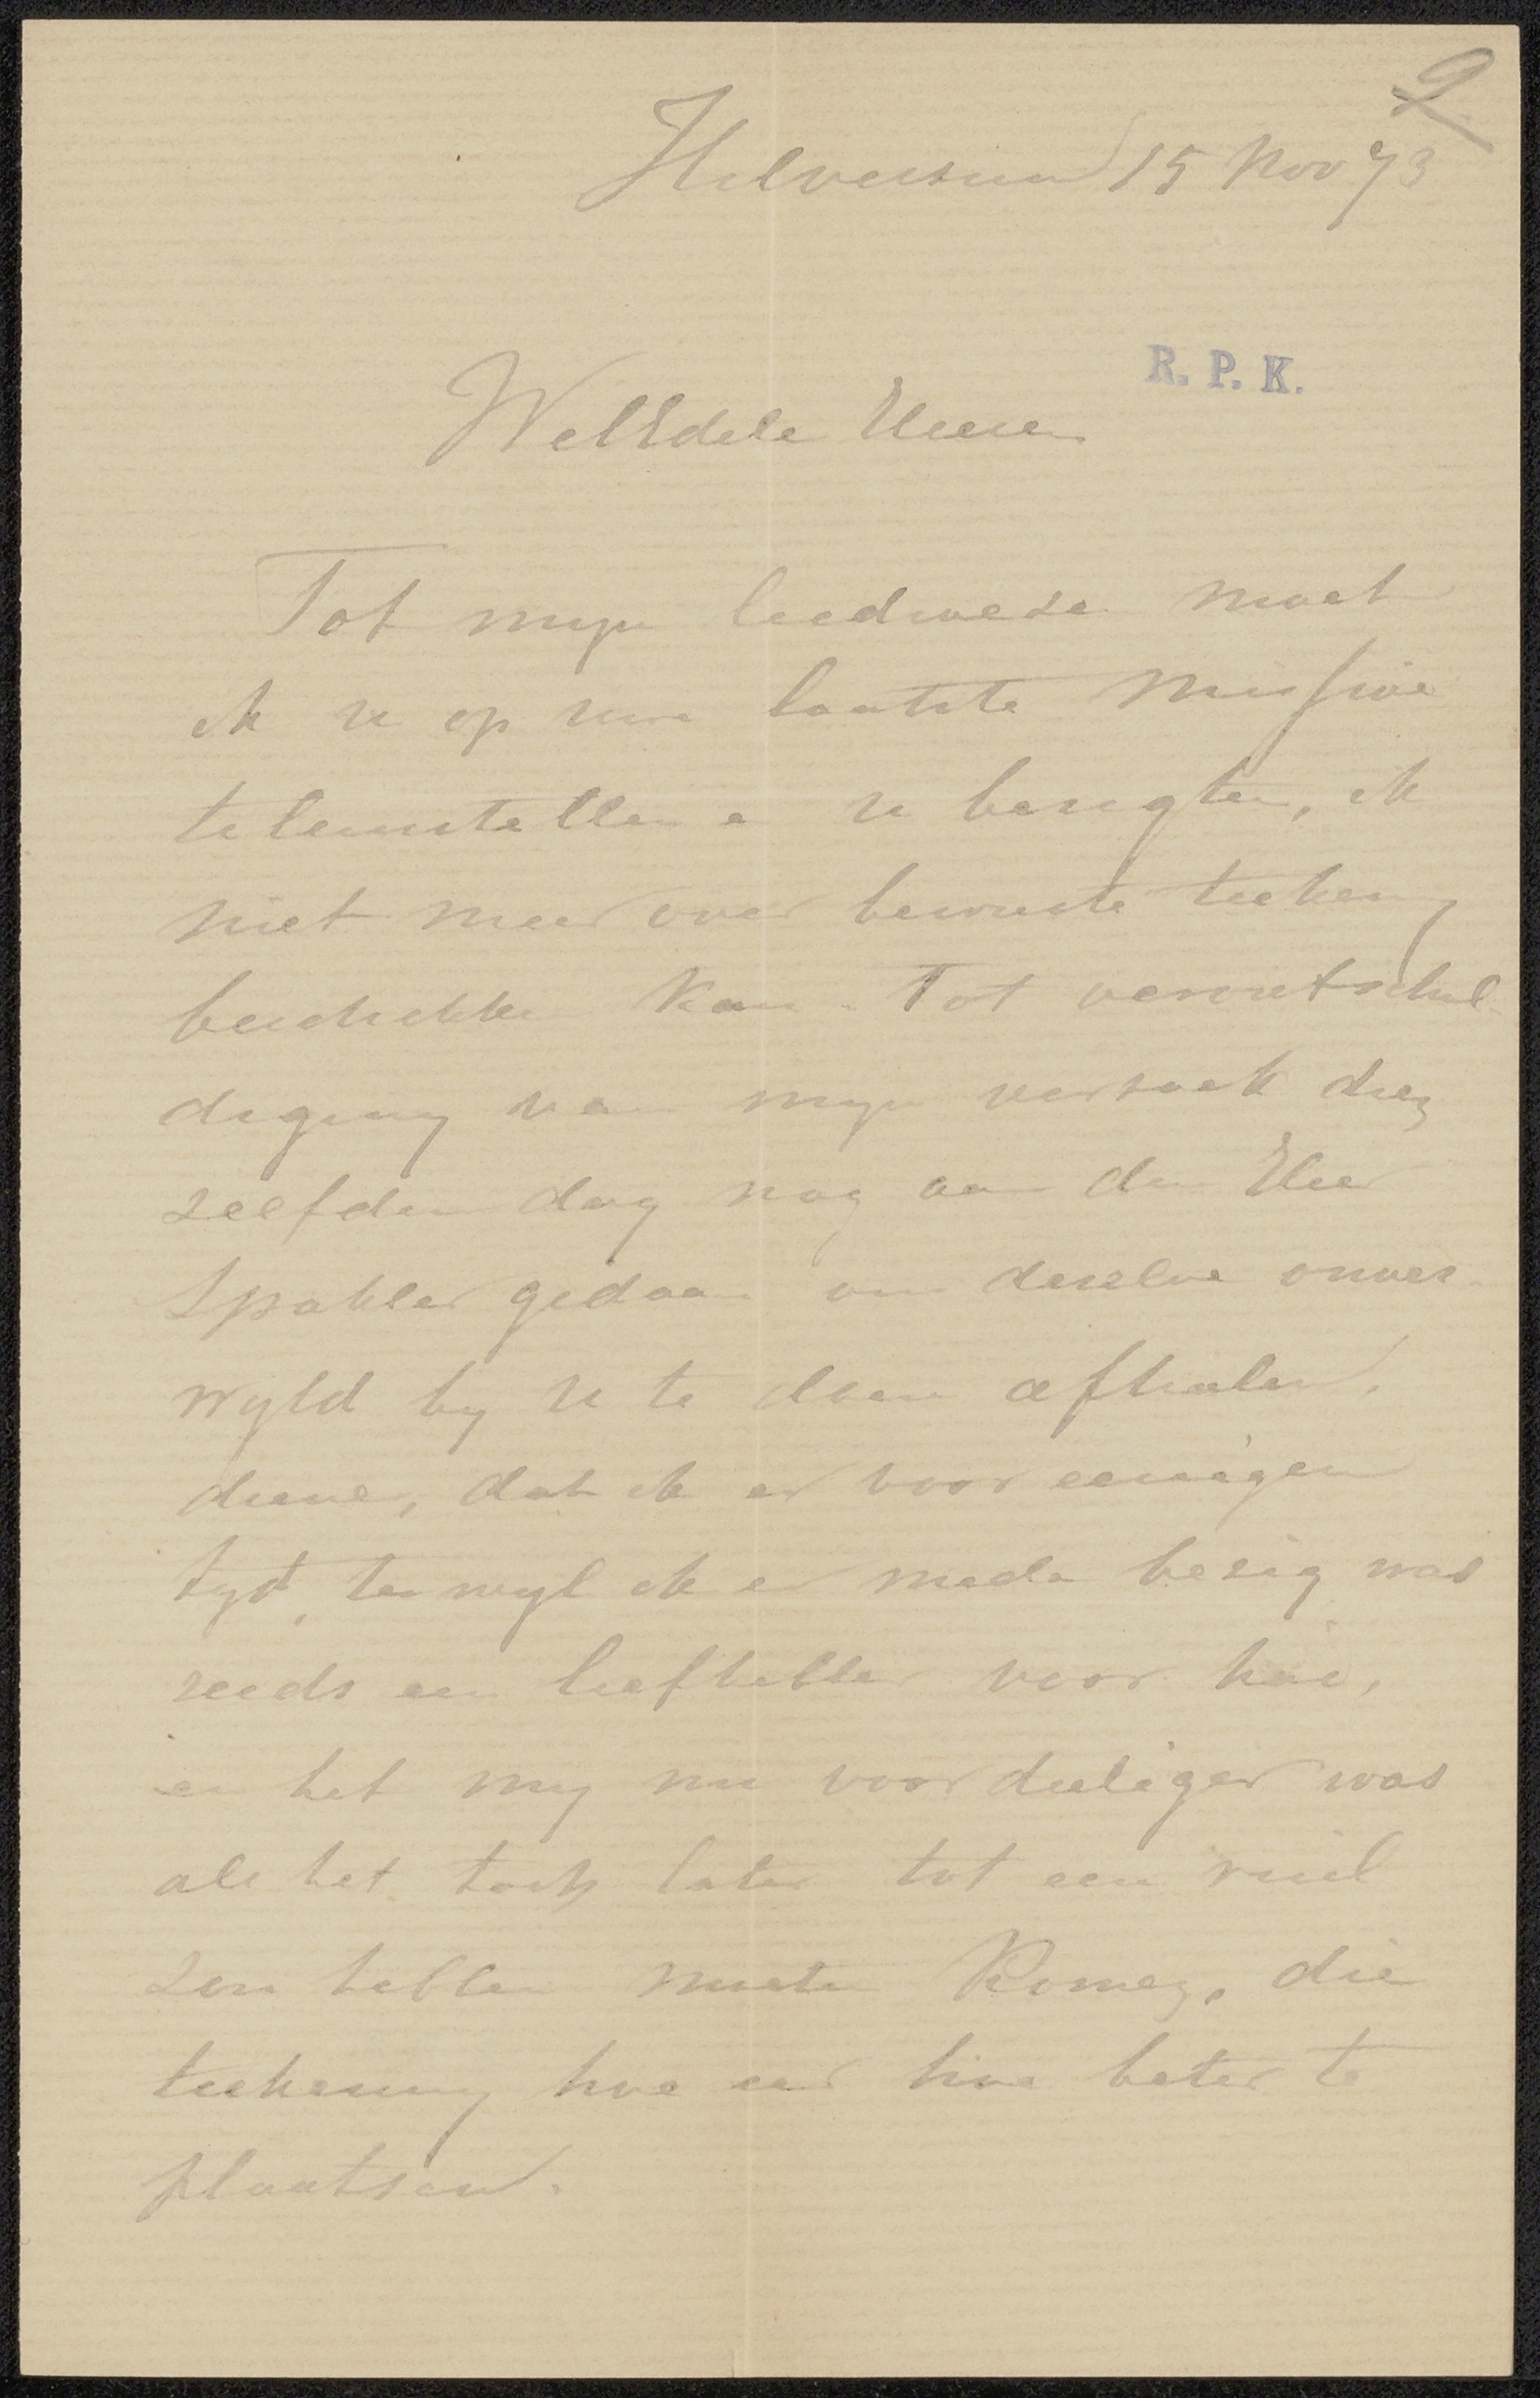 2
Hilversum 15 Nov 73
R. P. K.
WelEdele Heeren
Tot mijn leedweze moet
ik u op uwe laatste missive
teleurstellen en u berigten, ik
niet meer over bewuste teekening
beschikken kan. Tot verontschul-
diging van mijn verzoek dien
zelfden dag nog aan den Heer
gedaan om dezelve onver-
wyld by u te doen afhalen,
diene, dat ik er voor eenigen
tyd, terwyl ik er mede bezig was
reeds een liefhebber voor had,
en het my nu voordeeliger was
als het toch later tot een ruil
zou hebben moeten komen, die
teekening hoe eer hoe beter te
plaatsen.